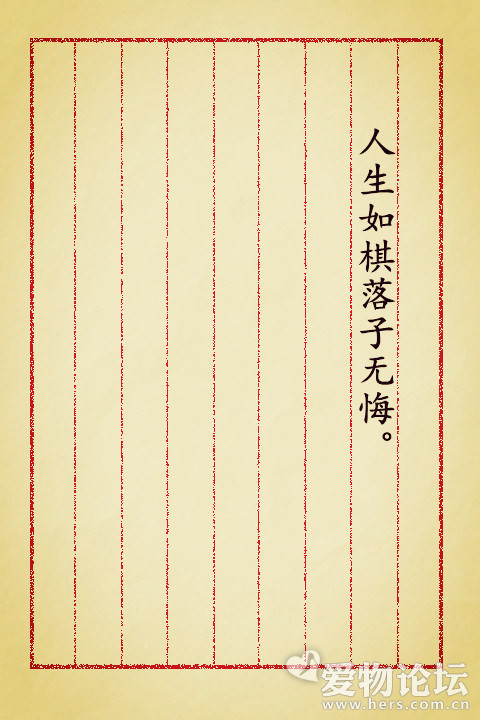 人生如棋落子无悔。
爱物论坛
www.hers.com.cn